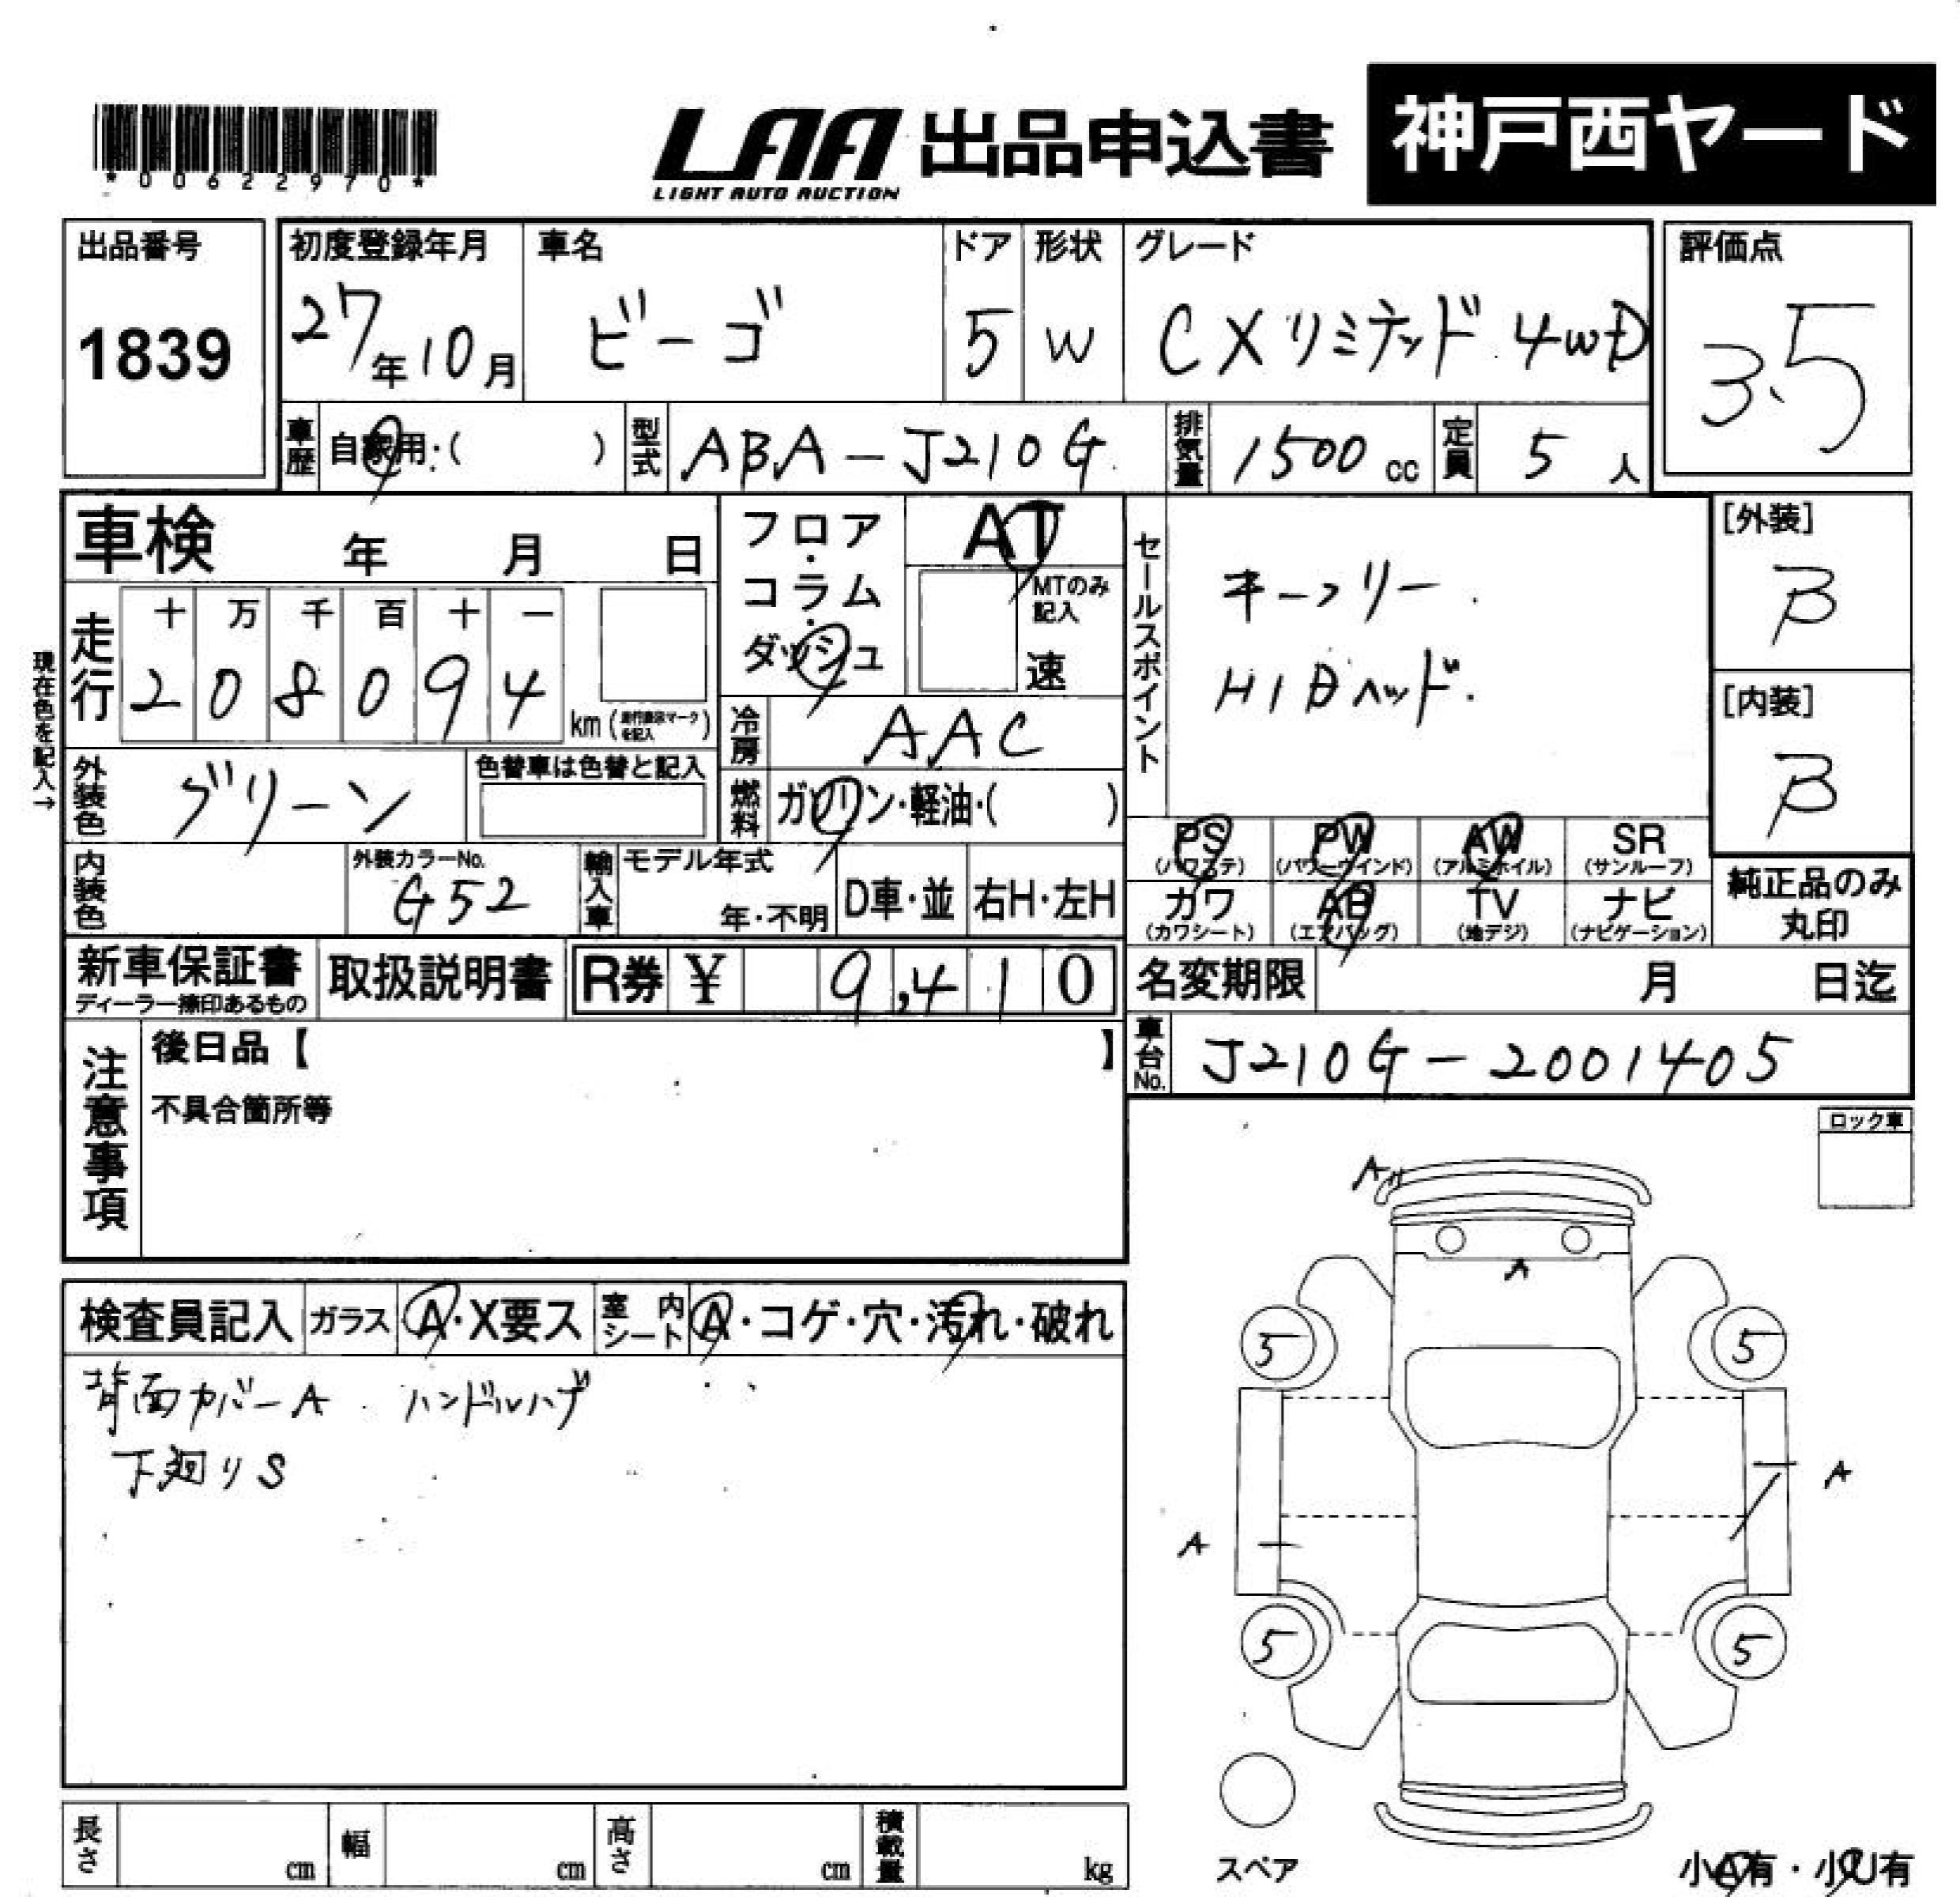 *00622970*
LAA 出品申込書 神戸西ヤード
LIGHT AUTO AUCTION
出品番号
1839
初度登録年月
27年10月
車名
ビーゴ
ドア
5
形状
W
グレード
CXリミテッド 4WD
評価点
3.5
車歴
自家用・( )
型式
ABA-J210G
排気量
1500 cc
定員
5 人
車検 年 月 日
フロア・コラム・ダッシュ
AT
MTのみ記入
速
セールスポイント
キーフリー
HIDヘッド
[外装]
B
[内装]
B
現在色を記入→
走行
十 万 千 百 十 一
2 0 8 0 9 4
km (走行表示マークを記入)
冷房
AAC
外装色
グリーン
色替車は色替と記入
燃料
ガソリン・軽油・( )
PS (パワステ)
PW (パワーウインド)
AW (アルミホイル)
SR (サンルーフ)
カワ (カワシート)
AB (エアバッグ)
TV (地デジ)
ナビ (ナビゲーション)
純正品のみ丸印
内装色
外装カラーNo.
G52
輸入車
モデル年式
年・不明
D車・並
右H・左H
新車保証書
ディーラー捺印あるもの
取扱説明書
R券 ¥ 9,410
名変期限 月 日迄
車台No.
J210G-2001405
注意事項
後日品【 】
不具合箇所等
ロック車
A〃
A
5
5
A
A
5
5
スペア
小A有・小U有
検査員記入
ガラス
A・X要ス
室内シート
A・コゲ・穴・汚れ・破れ
背面カバーA ハンドルハゲ
下廻りS
長さ cm
幅 cm
高さ cm
積載量 kg